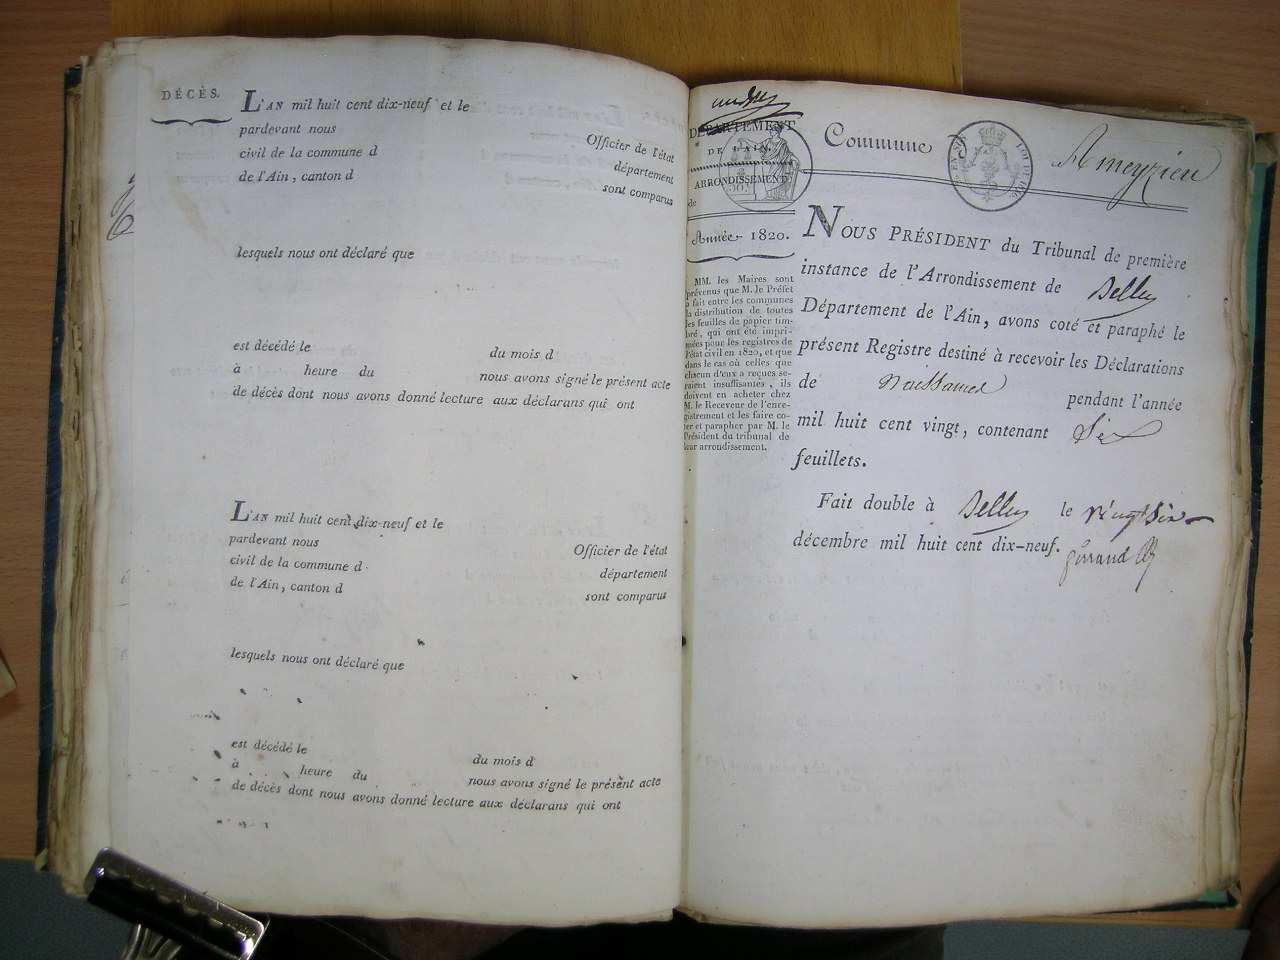 DÉCÈS.
L'AN mil huit cent dix-neuf et le
pardevant nous
Officier de l'état
civil de la commune d
département
de l'Ain, canton d
sont comparus
lesquels nous ont déclaré que
est décédé le
du mois d
à heure du
nous avons signé le présent acte
de décès dont nous avons donné lecture aux déclarans qui ont
L'AN mil huit cent dix-neuf et le
pardevant nous
Officier de l'état
civil de la commune d
département
de l'Ain, canton d
sont comparus
lesquels nous ont déclaré que
est décédé le
du mois d
à heure du
nous avons signé le présent acte
de décès dont nous avons donné lecture aux déclarans qui ont
DÉPARTEMENT
DE L'AIN.
ARRONDISSEMENT
de
Année 1820.
MM. les Maires sont
prévenus que M. le Préfet
a fait entre les communes
la distribution de toutes
les feuilles de papier tim-
bré, qui ont été impri-
mées pour les registres de
l'état civil en 1820, et que
dans le cas où celles que
chacun d'eux a reçues se-
raient insuffisantes, ils
doivent en acheter chez
M. le Receveur de l'enre-
gistrement et les faire co-
ter et parapher par M. le
Président du tribunal de
leur arrondissement.
Commune Ameyzieu
NOUS PRÉSIDENT du Tribunal de première
instance de l'Arrondissement de Belley
Département de l'Ain, avons coté et paraphé le
présent Registre destiné à recevoir les Déclarations
de Naissances pendant l'année
mil huit cent vingt, contenant Six
feuillets.
Fait double à Belley le vingt six
décembre mil huit cent dix-neuf.